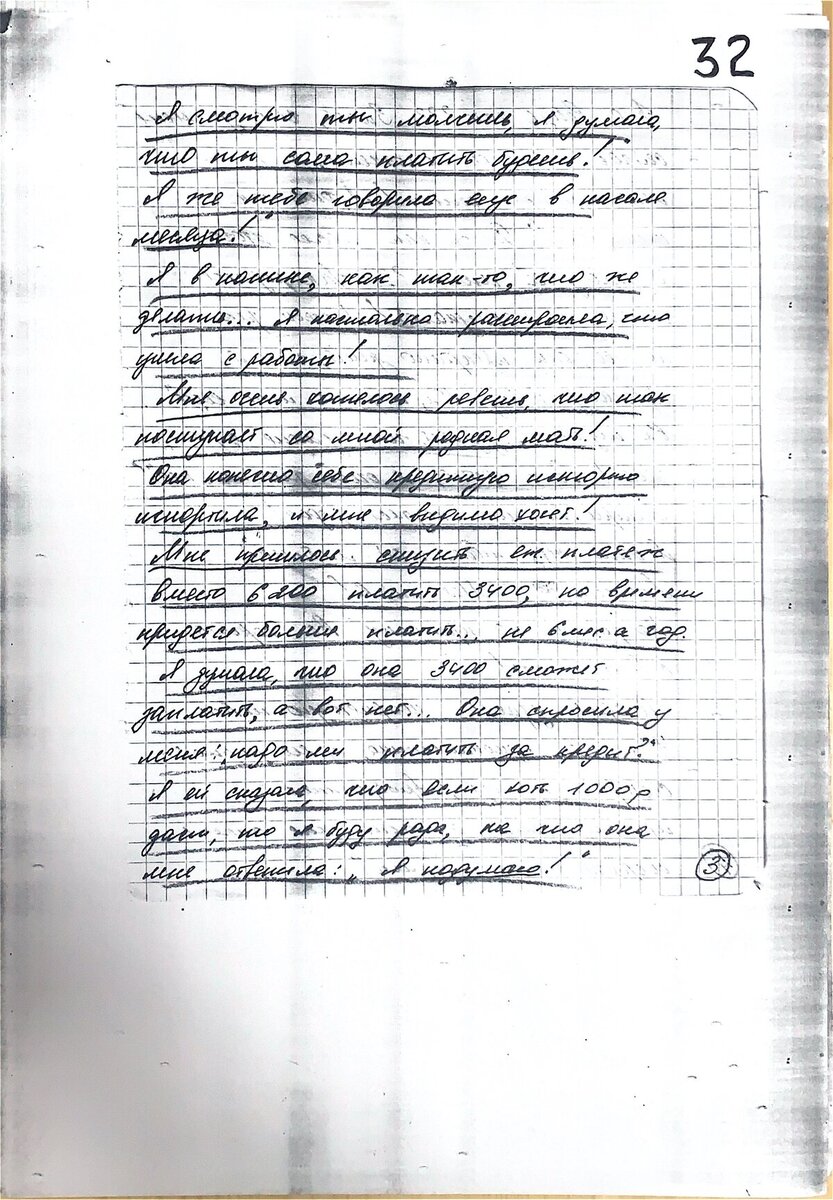 32
Я смотрю ты молчишь, я думала,
что ты сама платить будешь!
Я же тебе говорила еще в начале
месяца!"
Я в панике, как так-то, что же
делать... Я настолько расстроена, что
ушла с работы!
Мне очень хотелось реветь, что так
поступает со мной родная мать!
Она конечно себе кредитную историю
испортила, и мне видимо хочет!
Мне пришлось снизить еж платеж
вместо 6200 платить 3400, по времени
придется больше платить... не 6 мес а год.
Я думала, что она 3400 сможет
заплатить, а вот нет... Она спросила у
меня: "надо ли платить за кредит?"
Я ей сказала, что если хоть 1000р
даст, то я буду рада, на что она
мне ответила: "Я подумаю!"
3